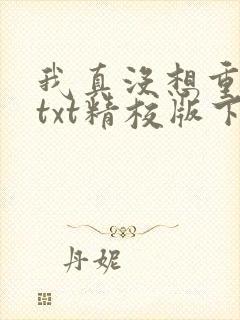 我真没想重
txt精校版下
丹妮